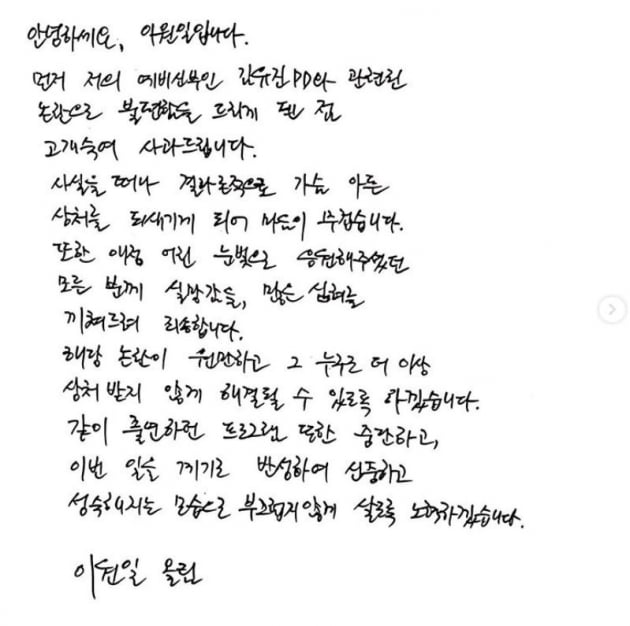 안녕하세요, 이원일입니다.
먼저 저의 예비신부인 김유진PD와 관련된
논란으로 불편함을 드리게 된 점
고개숙여 사과드립니다.
사실을 떠나 결과론적으로 가슴 아픈
상처를 되새기게 되어 마음이 무겁습니다.
또한 애정 어린 눈빛으로 응원해주셨던
모든 분께 실망감을, 많은 심려를
끼쳐드려 죄송합니다.
해당 논란이 원만하고 그 누구도 더 이상
상처 받지 않게 해결될 수 있도록 하겠습니다.
같이 출연하던 프로그램 또한 중단하고,
이번 일을 계기로 반성하여 신중하고
성숙해지는 모습으로 부끄럽지않게 살도록 노력하겠습니다.
이원일 올림